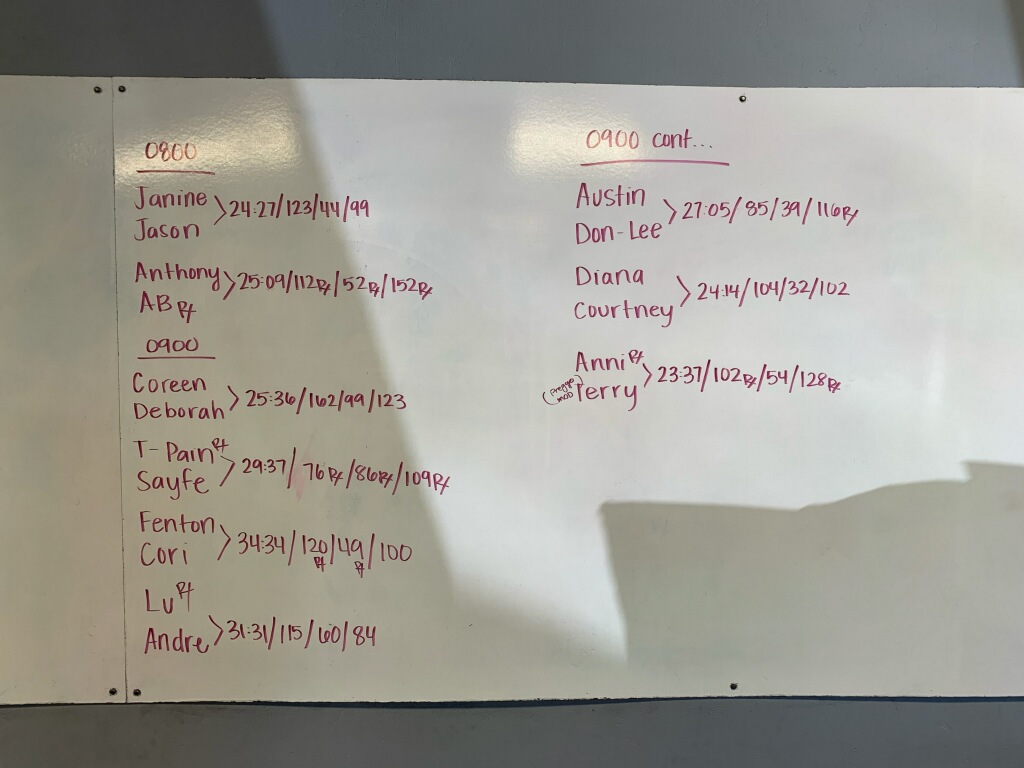 0800
Janine
Jason
24:27/123/44/99
Anthony
AB Rx
25:09/112Rx/52Rx/152Rx
0900
Coreen
Deborah
25:36/162/99/123
T-Pain Rx
Sayfe
29:37/ 76Rx/86Rx/109Rx
Fenton
Cori
34:34/120Rx/49Rx/100
Lu Rx
Andre
31:31/115/60/84
0900 cont...
Austin
Don-Lee
27:05/85/39/116Rx
Diana
Courtney
24:14/104/32/102
Anni Rx
(preggo mod) Terry
23:37/102Rx/54/128Rx